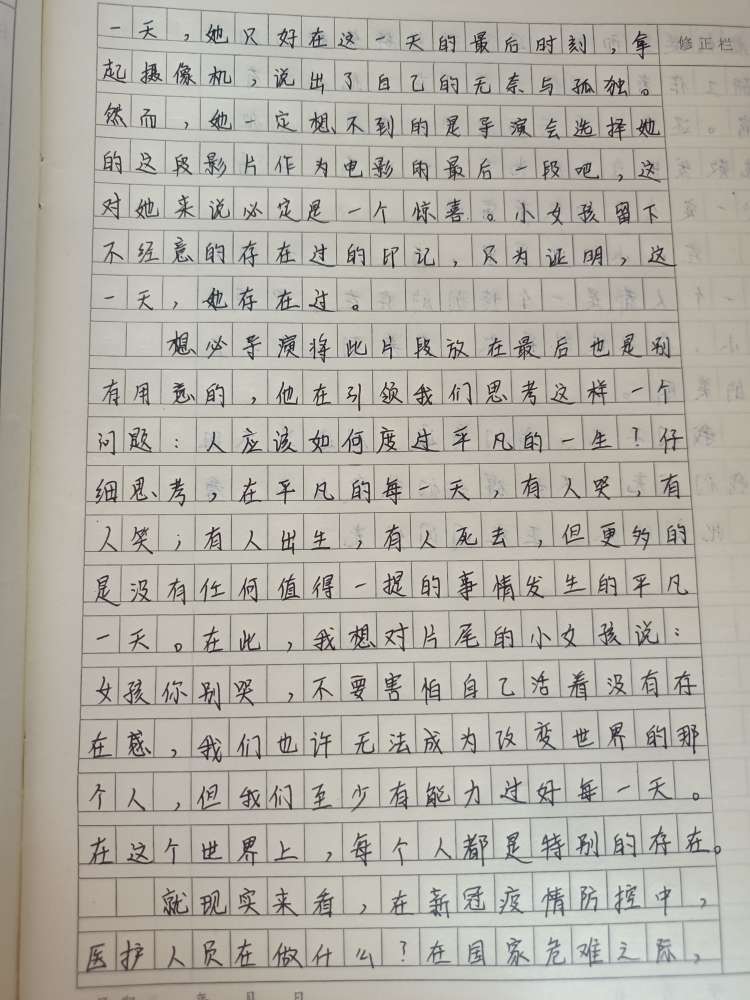 一天，她只好在这一天的最后时刻，拿
修正栏
起摄像机，说出了自己的无奈与孤独。
然而，她一定想不到的是导演会选择她
的这段影片作为电影的最后一段吧，这
对她来说必定是一个惊喜。小女孩留下
不经意的存在过的印记，只为证明，这
一天，她存在过。
想必导演将此片段放在最后也是别
有用意的，他在引领我们思考这样一个
问题：人应该如何度过平凡的一生？仔
细思考，在平凡的每一天，有人哭，有
人笑；有人出生，有人死去，但更多的
是没有任何值得一提的事情发生的平凡
一天。在此，我想对片尾的小女孩说：
女孩你别哭，不要害怕自己活着没有存
在感，我们也许无法成为改变世界的那
个人，但我们至少有能力过好每一天。
在这个世界上，每个人都是特别的存在。
就现实来看，在新冠疫情防控中，
医护人员在做什么？在国家危难之际，
年 月 日